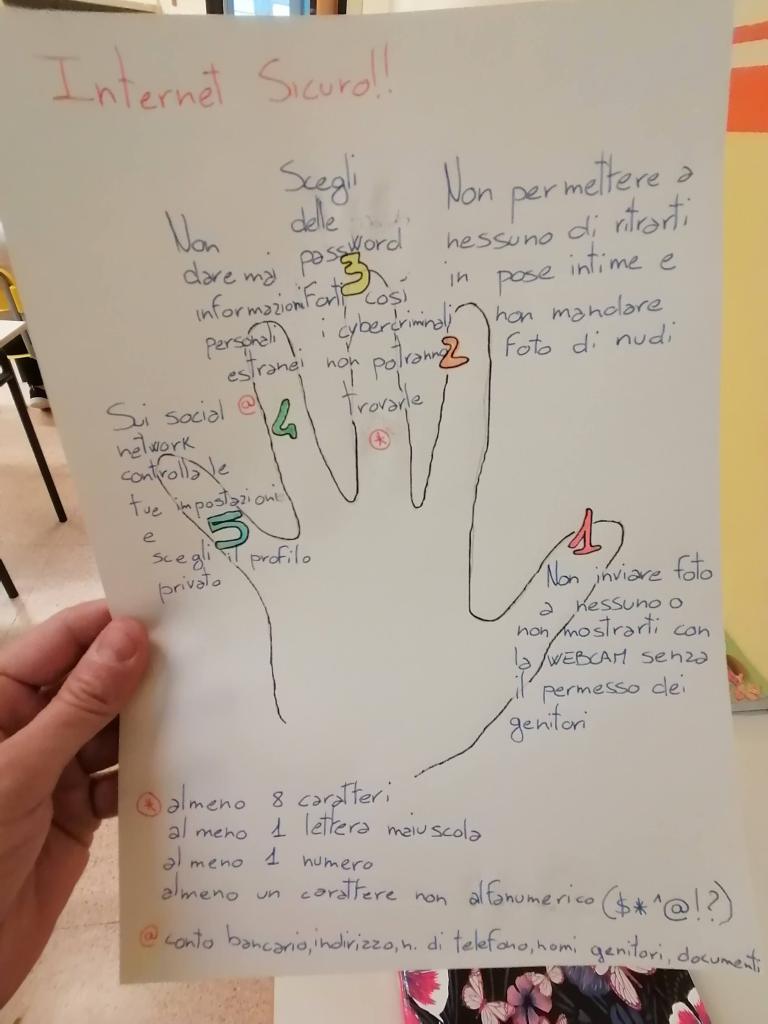 Internet Sicuro!!
1
Non inviare foto
a nessuno o
non mostrarti con
la WEBCAM senza
il permesso dei
genitori
Non permettere a
nessuno di ritrarti
in pose intime e
non mandare
foto di nudi
2
Scegli
delle
password
3
Forti così
i cybercriminali
non potranno
trovarle
*
Non
dare mai
informazioni
personali
estranei
@
4
Sui social
network
controlla le
tue impostazioni
e
scegli il profilo
privato
5
* almeno 8 caratteri
almeno 1 lettera maiuscola
almeno 1 numero
almeno un carattere non alfanumerico ($*^@!?)
@ conto bancario, indirizzo, n. di telefono, nomi genitori, documenti